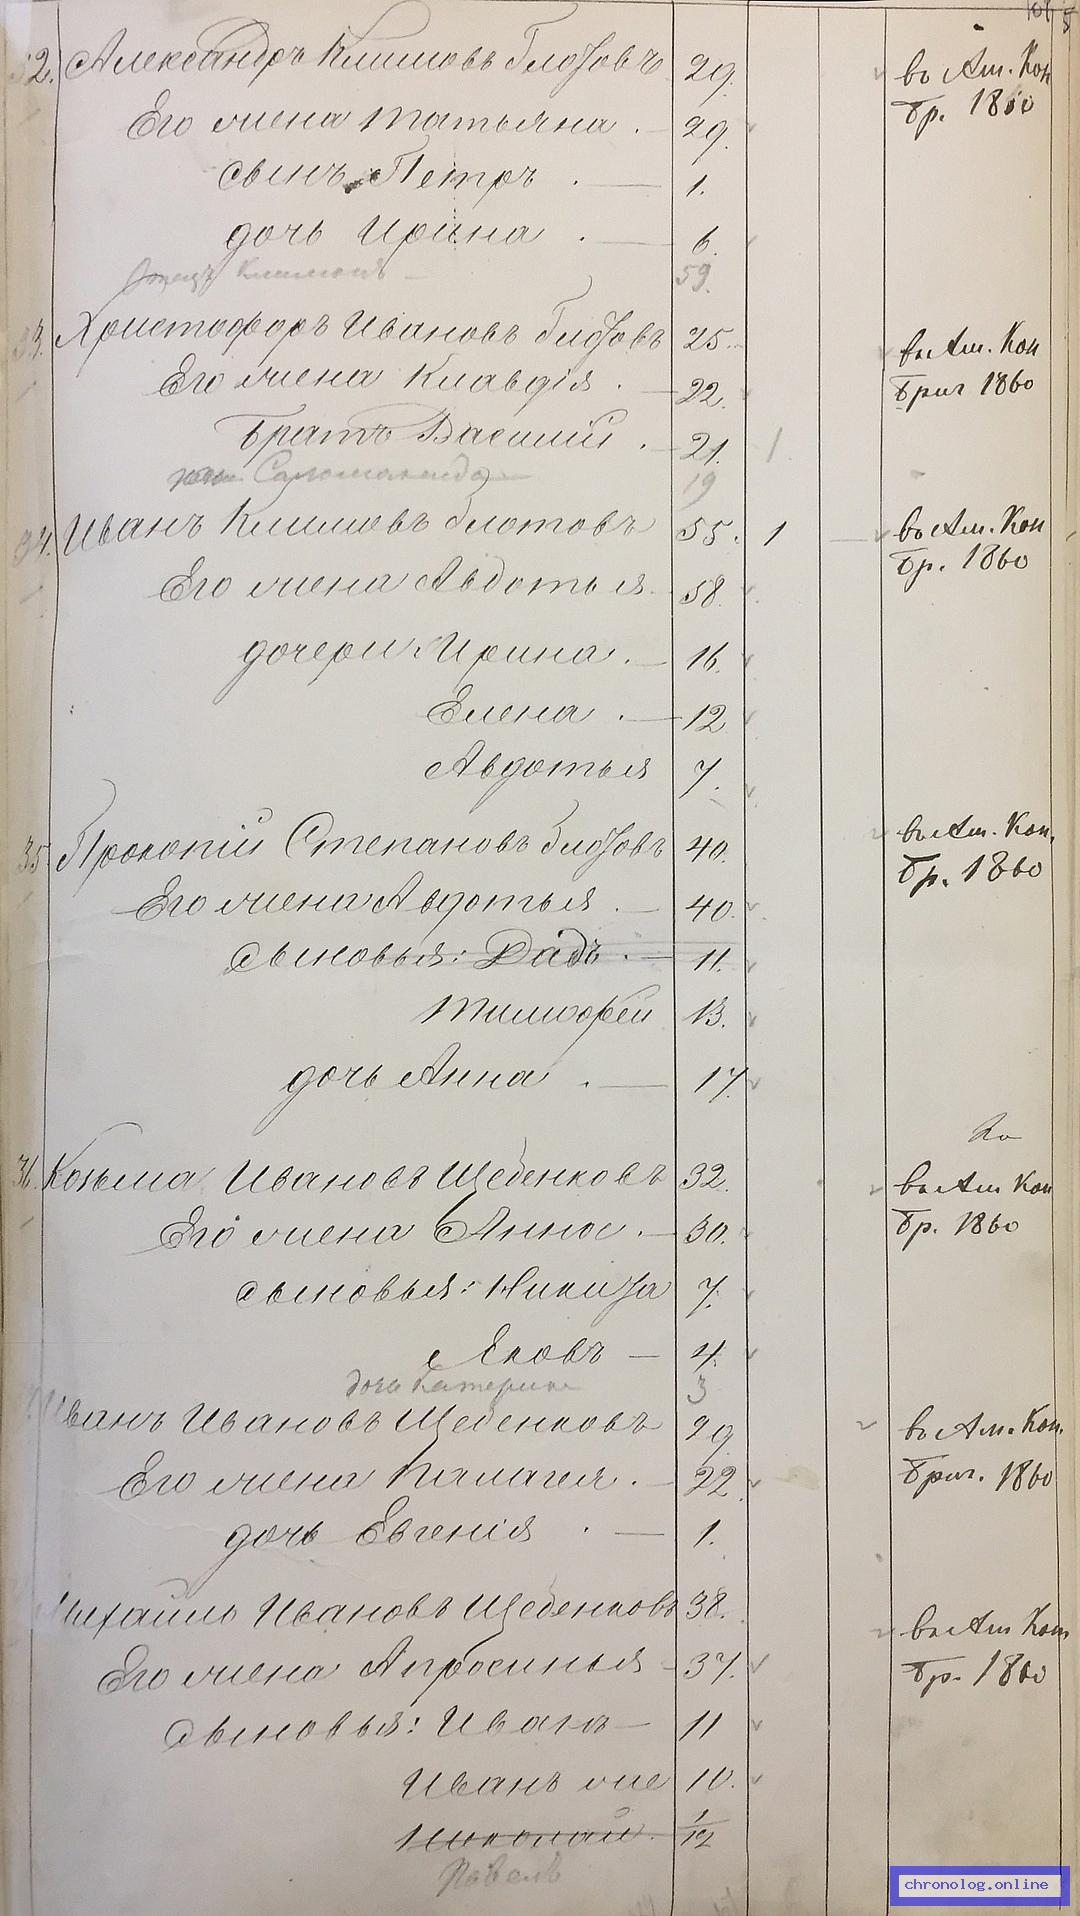 32. Александръ Климовъ Глотовъ 29. въ Ам. Кон
Его жена Татьяна. 29. бр. 1860
сынъ Петръ. 1.
дочь Ирина. 6.
Отецъ Климонъ 59.
33. Христофоръ Ивановъ Глотовъ 25. въ Ам. Кон
Его жена Клавдія. 22. бриг 1860
Братъ Василий. 21. 1.
жена Саломонида 19
34. Иванъ Климовъ Глотовъ 55. 1 въ Ам. Кон
Его жена Авдотья 58. бр. 1860
дочери Ирина. 16.
Елена. 12
Авдотья 7.
35 Прокопій Степановъ Глотовъ 40. въ Ам. Кон.
Его жена Авдотья. 40. бр. 1860
сыновья: 11.
Тимофей 13.
дочь Анна. 17.
36. Козьма Ивановъ Щебенковъ 32. въ Ам Кон
Его жена Анна. 30. бр. 1860
сыновья: Никита 7.
Яковъ 4.
дочь Катерина 3
Иванъ Ивановъ Щебенковъ 29 въ Ам. Кон.
Его жена Палагея. 22. бриг. 1860
дочь Евгенія. 1.
Михаилъ Ивановъ Щебенковъ 38. въ Ам Кон
Его жена Апросинья 37. бр. 1860
сыновья: Иванъ 11
Иванъ же 10.
Николай. 1/12
Павелъ
chronolog.online